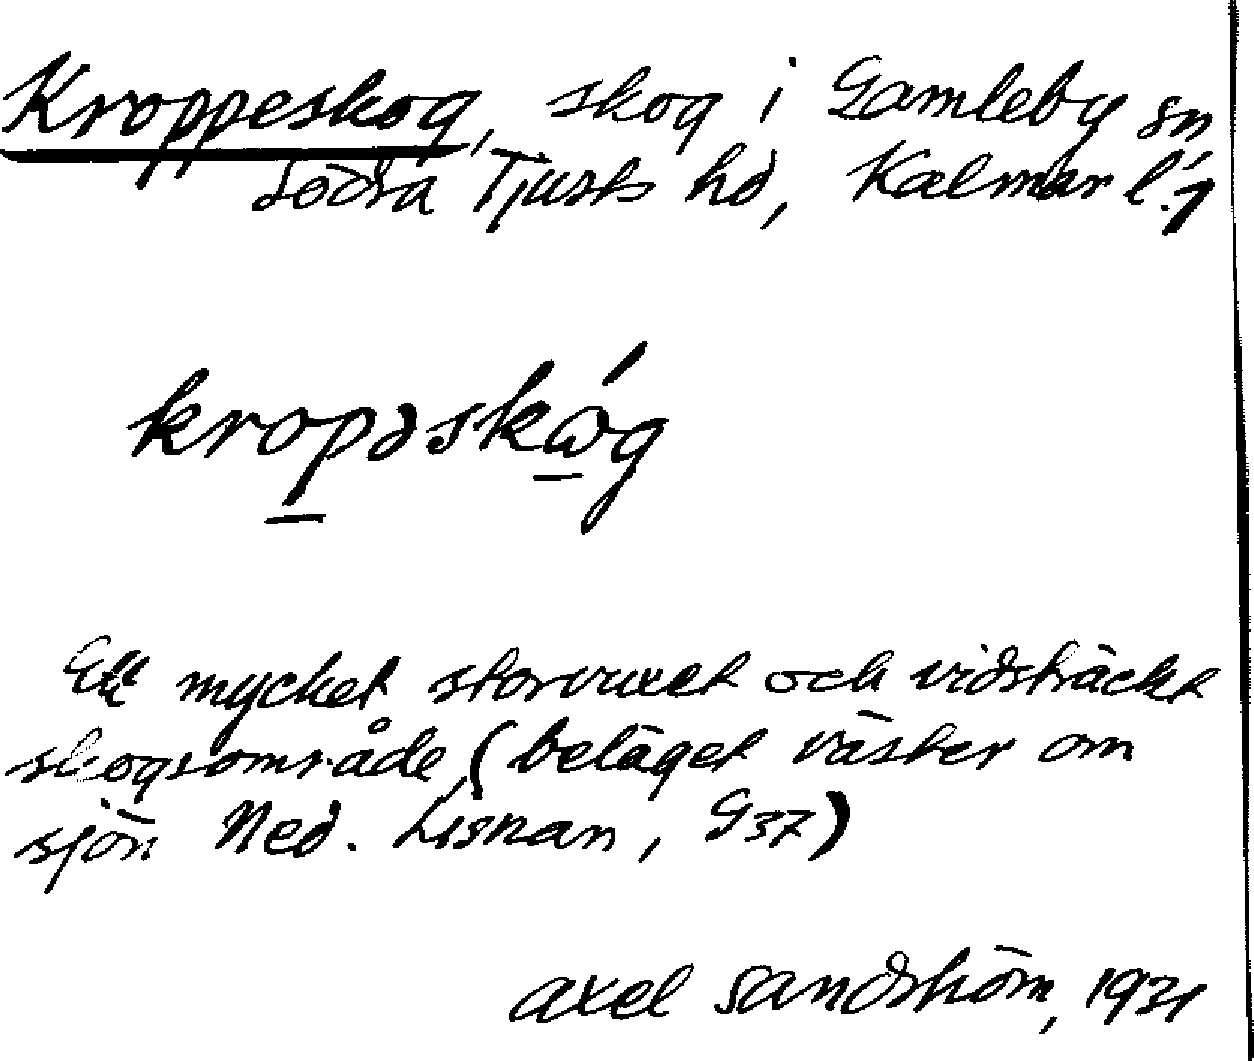 Kroppeskog, skog i Gamleby sn
Södra Tjusts hd, Kalmar l.
kropəskẃg
Ett mycket storvuxet och vidsträckt
skogsområde, (beläget väster om
sjön Ned. Lisnan, G37)
Axel Sandström, 1931